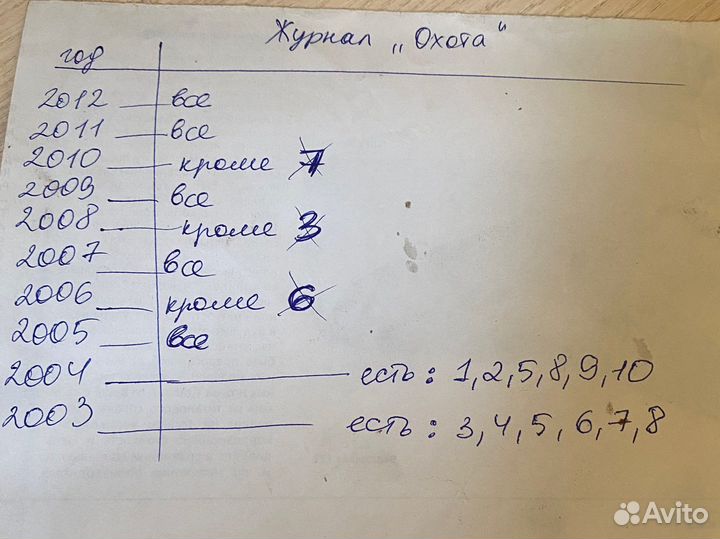 Журнал „Охота"
год
2012 — все
2011 — все
2010 — кроме 7
2009 — все
2008 — кроме 3
2007 — все
2006 — кроме 6
2005 — все
2004 — есть: 1, 2, 5, 8, 9, 10
2003 — есть: 3, 4, 5, 6, 7, 8
Avito